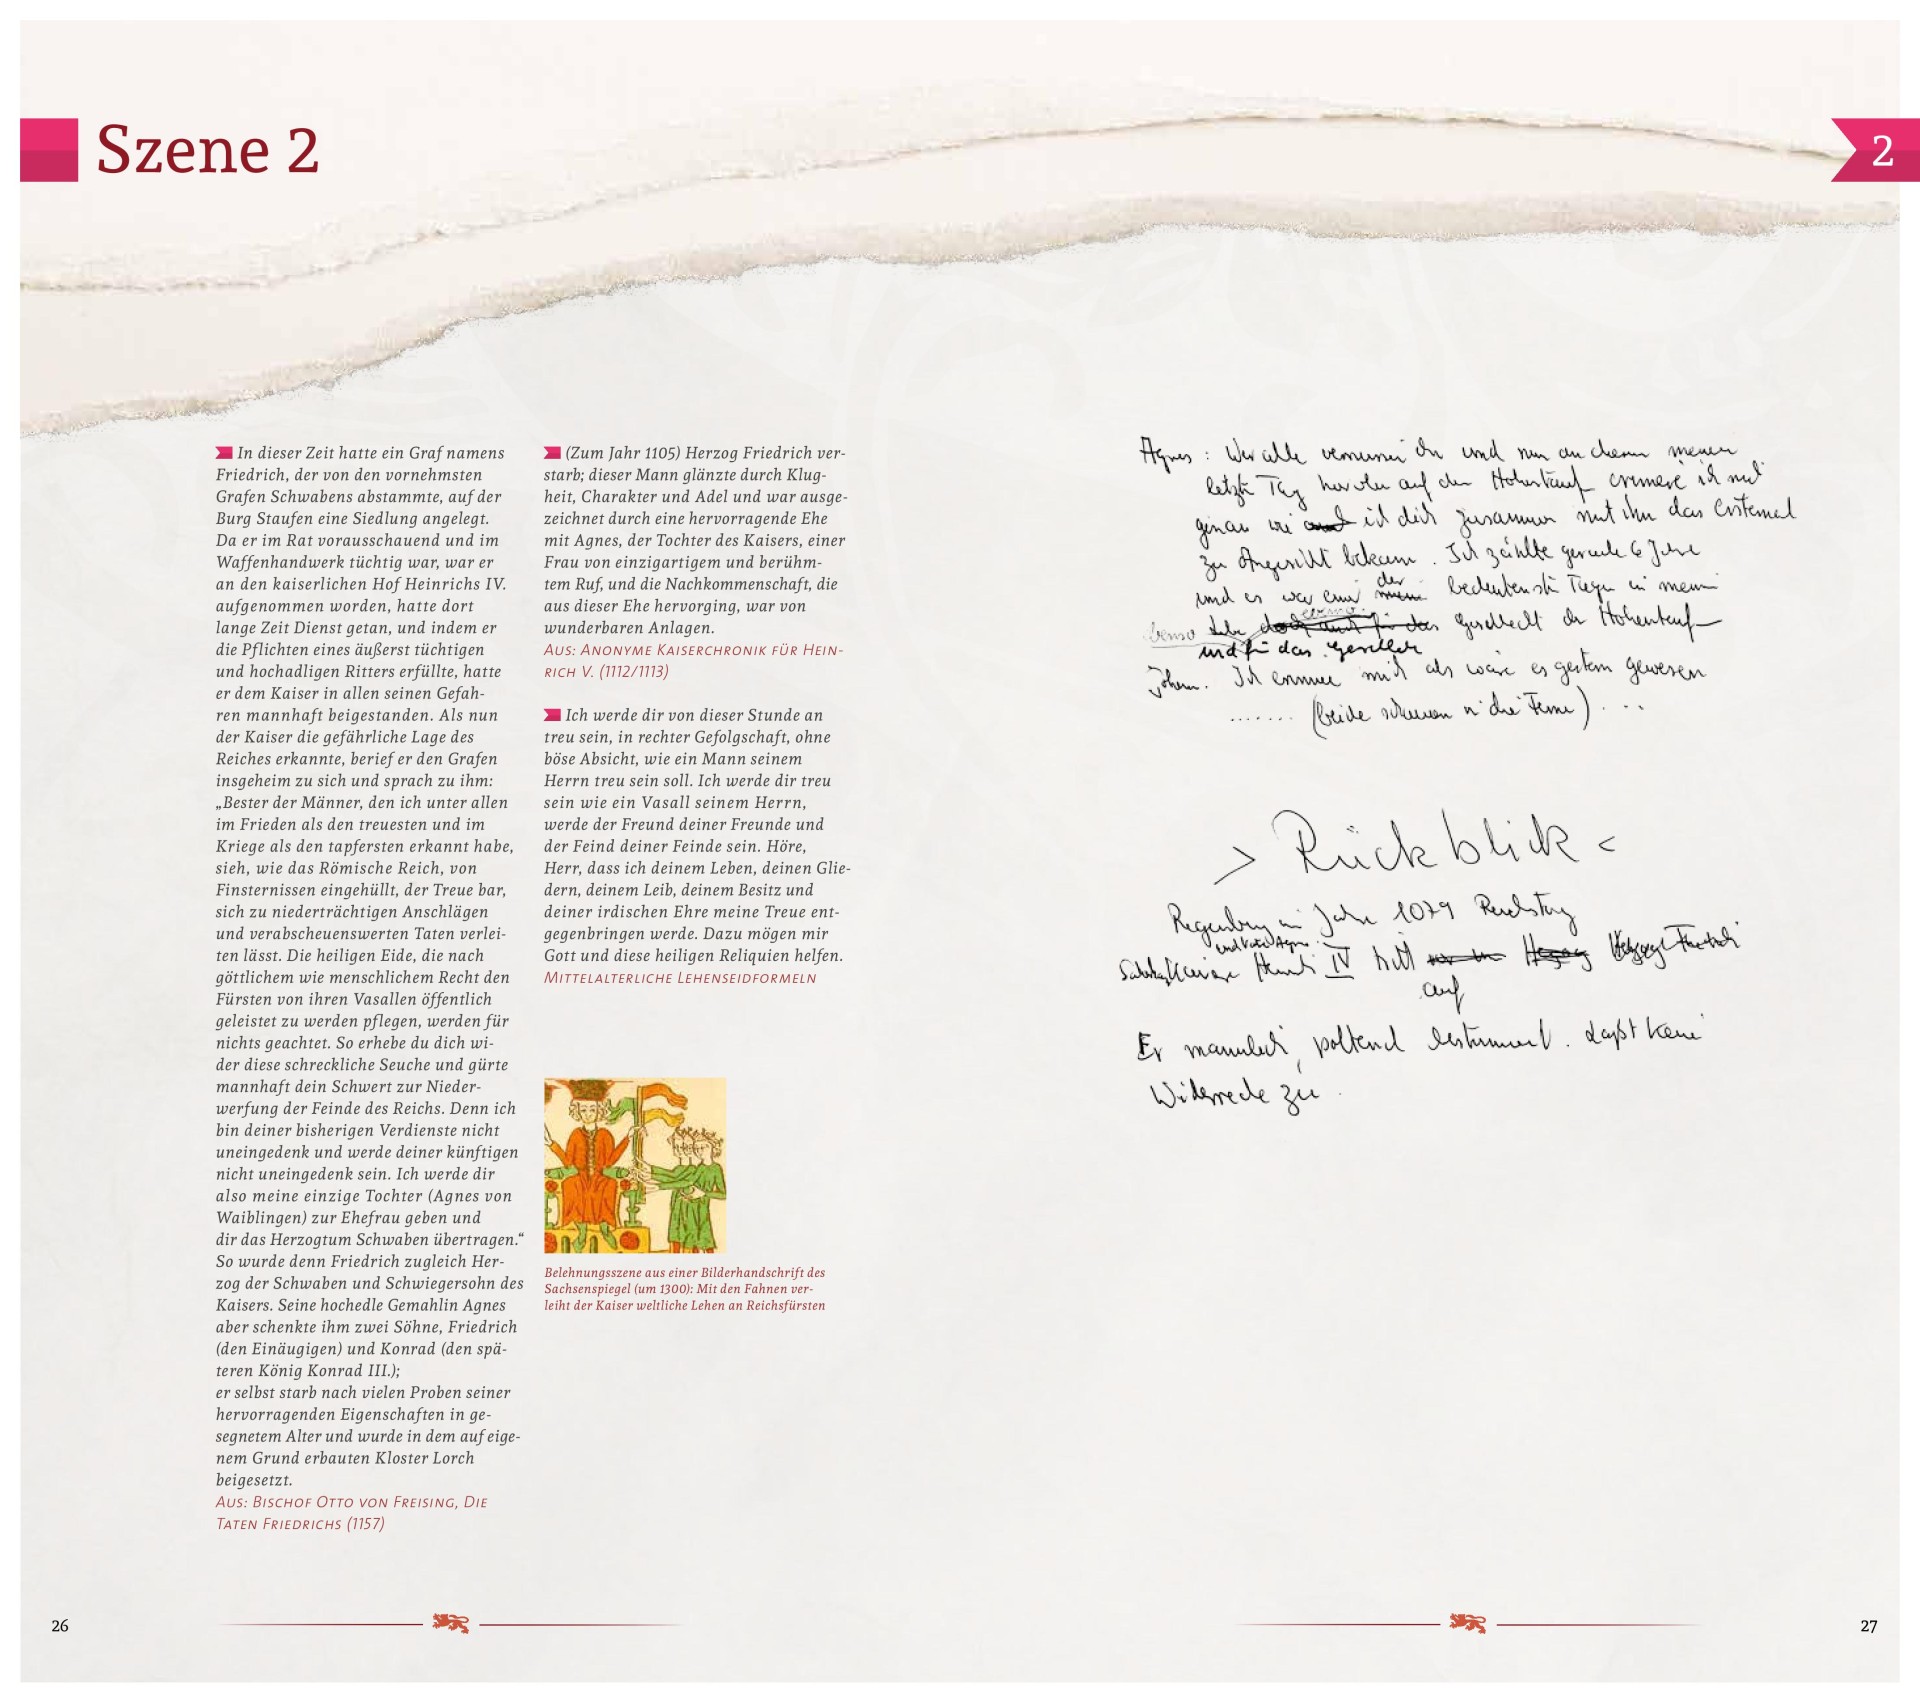 Szene 2
2
In dieser Zeit hatte ein Graf namens
Friedrich, der von den vornehmsten
Grafen Schwabens abstammte, auf der
Burg Staufen eine Siedlung angelegt.
Da er im Rat vorausschauend und im
Waffenhandwerk tüchtig war, war er
an den kaiserlichen Hof Heinrichs IV.
aufgenommen worden, hatte dort
lange Zeit Dienst getan, und indem er
die Pflichten eines äußerst tüchtigen
und hochadligen Ritters erfüllte, hatte
er dem Kaiser in allen seinen Gefah-
ren mannhaft beigestanden. Als nun
der Kaiser die gefährliche Lage des
Reiches erkannte, berief er den Grafen
insgeheim zu sich und sprach zu ihm:
„Bester der Männer, den ich unter allen
im Frieden als den treuesten und im
Kriege als den tapfersten erkannt habe,
sieh, wie das Römische Reich, von
Finsternissen eingehüllt, der Treue bar,
sich zu niederträchtigen Anschlägen
und verabscheuenswerten Taten verlei-
ten lässt. Die heiligen Eide, die nach
göttlichem wie menschlichem Recht den
Fürsten von ihren Vasallen öffentlich
geleistet zu werden pflegen, werden für
nichts geachtet. So erhebe du dich wi-
der diese schreckliche Seuche und gürte
mannhaft dein Schwert zur Nieder-
werfung der Feinde des Reichs. Denn ich
bin deiner bisherigen Verdienste nicht
uneingedenk und werde deiner künftigen
nicht uneingedenk sein. Ich werde dir
also meine einzige Tochter (Agnes von
Waiblingen) zur Ehefrau geben und
dir das Herzogtum Schwaben übertragen.“
So wurde denn Friedrich zugleich Her-
zog der Schwaben und Schwiegersohn des
Kaisers. Seine hochedle Gemahlin Agnes
aber schenkte ihm zwei Söhne, Friedrich
(den Einäugigen) und Konrad (den spä-
teren König Konrad III.);
er selbst starb nach vielen Proben seiner
hervorragenden Eigenschaften in ge-
segnetem Alter und wurde in dem auf eige-
nem Grund erbauten Kloster Lorch
beigesetzt.
Aus: Bischof Otto von Freising, Die
Taten Friedrichs (1157)
(Zum Jahr 1105) Herzog Friedrich ver-
starb; dieser Mann glänzte durch Klug-
heit, Charakter und Adel und war ausge-
zeichnet durch eine hervorragende Ehe
mit Agnes, der Tochter des Kaisers, einer
Frau von einzigartigem und berühm-
tem Ruf, und die Nachkommenschaft, die
aus dieser Ehe hervorging, war von
wunderbaren Anlagen.
Aus: Anonyme Kaiserchronik für Hein-
rich V. (1112/1113)
Ich werde dir von dieser Stunde an
treu sein, in rechter Gefolgschaft, ohne
böse Absicht, wie ein Mann seinem
Herrn treu sein soll. Ich werde dir treu
sein wie ein Vasall seinem Herrn,
werde der Freund deiner Freunde und
der Feind deiner Feinde sein. Höre,
Herr, dass ich deinem Leben, deinen Glie-
dern, deinem Leib, deinem Besitz und
deiner irdischen Ehre meine Treue ent-
gegenbringen werde. Dazu mögen mir
Gott und diese heiligen Reliquien helfen.
Mittelalterliche Lehenseidformeln
Belehnungsszene aus einer Bilderhandschrift des
Sachsenspiegel (um 1300): Mit den Fahnen ver-
leiht der Kaiser weltliche Lehen an Reichsfürsten
Agnes: Wir alle vermissen ihn und nun an diesem meinen
letzten Tag hier oben auf dem Hohenstaufen erinnere ich mich
genau wie ich dich zusammen mit ihm das Erstemal
zu Angesicht bekam. Ich zählte gerade 6 Jahre
und es war einer der bedeutensten Tage in meinem
Leben ebenso
und für das Geschlecht der Hohenstaufen
Johann. Ich erinnere mich als wäre es gestern gewesen
....... (beide schauen in die Ferne) ...
> Rückblick <
Regensburg im Jahre 1079 Reichstag
Kaiser Heinrich IV tritt Herzog Friedrich
auf
Er männlich, poltend bestimmend. Läßt keine
Widerrede zu.
26
27